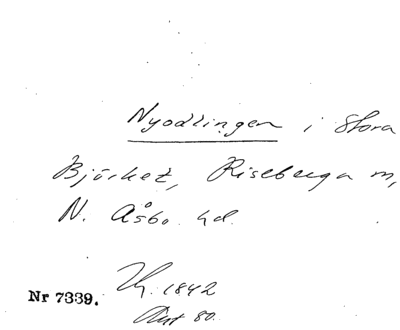 Nyodlingen i Stora
Björket, Riseberga m,
N. Åsbo hd.
1842
80.
Nr 7339.